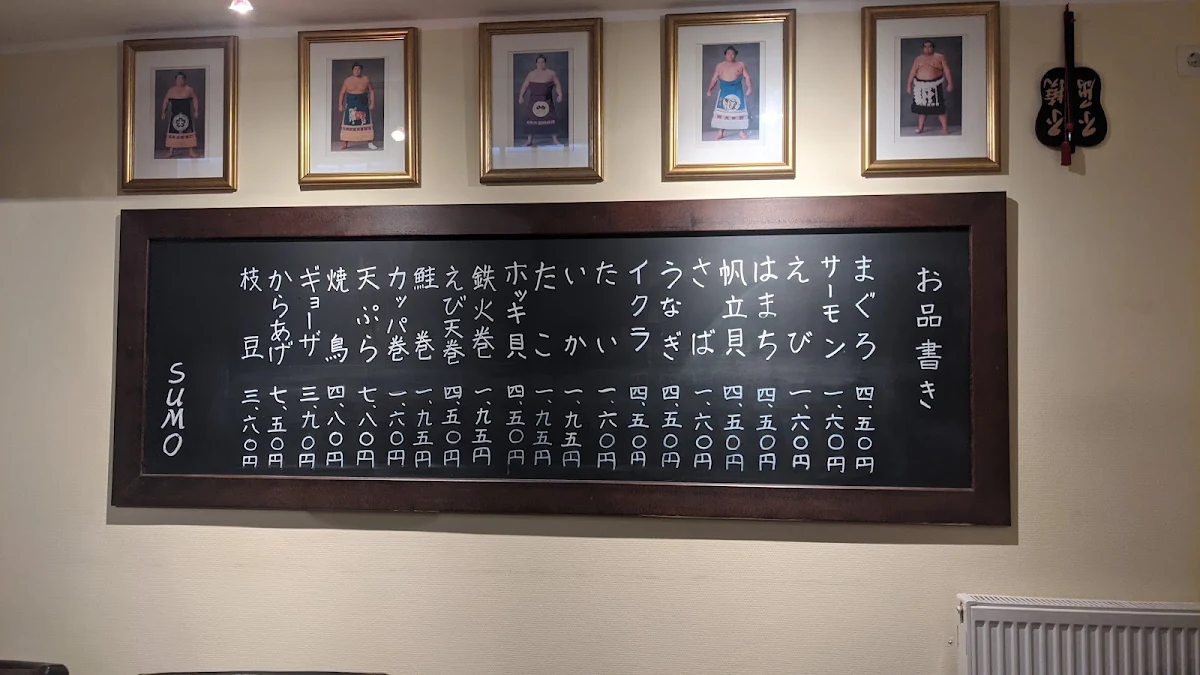 お品書き
まぐろ 四、五〇円
サーモン 一、六〇円
えび 一、六〇円
はまち 四、五〇円
帆立貝 四、五〇円
さば 一、六〇円
うなぎ 四、五〇円
イクラ 四、五〇円
たい 一、六〇円
いか 一、九五円
たこ 一、九五円
ホッキ貝 四、五〇円
鉄火巻 一、九五円
えび天巻 四、五〇円
鮭巻 一、九五円
カッパ巻 一、六〇円
天ぷら 七、八〇円
焼鳥 四、八〇円
ギョーザ 三、九〇円
からあげ 七、五〇円
枝豆 三、六〇円
SUMO